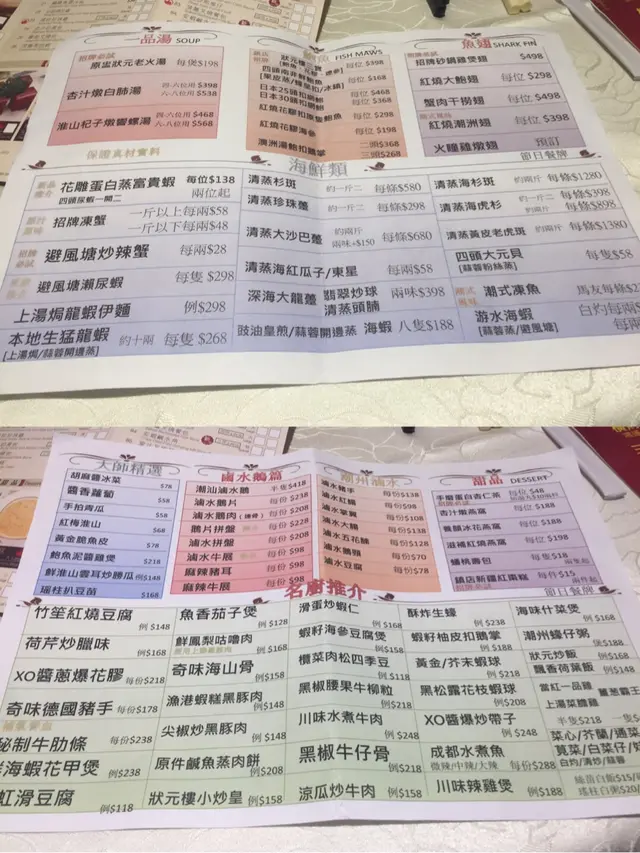 一品湯 SOUP
招牌必試
原盅狀元老火湯 每煲$198
杏汁燉白肺湯 四-六位用 $398
六-八位用 $538
淮山杞子燉響螺湯 四-六位用 $468
六-八位用 $568
保證真材實料
FISH MAWS
四頭南非鮮鮑魚 每位$168
日本25頭吉品鮑 每位 $468
日本30頭 每位 $368
紅燒花膠扣 鮑魚 每位 $298
紅燒花膠海參 每位 $198
澳洲湯鮑扣鵝掌 二頭$368
三頭$268
魚翅 SHARK FIN
招牌砂鍋雞煲翅 $498
紅燒大鮑翅 每位 $298
蟹肉干撈翅 每位 $498
紅燒潮洲翅 每位 $298
火朣雞燉翅 預訂
節日餐牌
海鮮類
花雕蛋白蒸富貴蝦 每位$138
四頭瀨尿蝦一開二 兩位起
招牌凍蟹 一斤以上每兩$58
一斤以下每兩$48
避風塘炒辣蟹 每兩$28
避風塘瀨尿蝦 每隻 $298
上湯焗龍蝦伊麵 例$298
本地生猛龍蝦 約十兩 每隻 $268
[上湯焗/蒜蓉開邊蒸]
清蒸杉斑 約一斤二 每條$580
清蒸珍珠躉 約一斤二 每條$298
清蒸大沙巴躉 約兩斤 每條$680
兩味+$150
清蒸海紅瓜子/東星 每兩$58
深海大龍躉 翡翠炒球 兩味$398
清蒸頭腩
豉油皇煎/蒜蓉開邊蒸 海蝦 八隻$188
清蒸海杉斑 約兩斤 每條$1280
清蒸海虎杉 約一斤 每條$398
約兩斤 每條$898
清蒸黃皮老虎斑 約兩斤 每條$1380
四頭大元貝 每隻$58
[蒜蓉粉絲蒸]
潮式凍魚 馬友每條$2
游水海蝦 白灼每兩$
[蒜蓉蒸/避風塘]
大師精選
胡麻醬冰菜 $78
醬香蘿蔔 $58
手拍青瓜 $58
紅梅淮山 $68
黃金脆魚皮 $78
鮑魚泥醬雞煲 $218
鮮淮山雲耳炒勝瓜 例$148
瑤柱扒豆苗 $168
鹵水鵝篇
潮汕鹵水鵝 半隻$418
鹵水鵝片 每份$238
鹵水鵝肉 每份$208
鵝片拼盤 每份$228
鹵水拼盤 每份$208
鹵水牛展 每份$98
麻辣豬耳 每份$98
麻辣牛展 每份$98
潮州滷水
滷水豬手 每份$138
滷水紅腸 每份$98
滷水掌翼 每份$108
滷水大腸 每份$138
滷水五花腩 每份$128
滷水鵝頭 每份$70
滷水豆腐 每份$78
甜品 DESSERT
手磨蛋白杏仁茶 每位 $48
杏汁燉燕窩 每位 $188
養顏冰花燕窩 每位 $188
滋補紅燒燕窩 每位 $198
蟠桃壽包 每隻$18
紅棗糕 每件$15
節日餐牌
名廚推介
竹笙紅燒豆腐 例 $148
荷芹炒臘味 例 $168
XO醬蔥爆花膠 每份$218
奇味德國豬手 每份$178
秘制牛肋條 每份$238
海蝦花甲煲 例$238
虹滑豆腐 例$118
魚香茄子煲 例 $128
鮮鳳梨咕嚕肉 例 $168
奇味海山骨 例 $158
漁港蝦糕黑豚肉 例$148
尖椒炒黑豚肉 例 $148
原件鹹魚蒸肉餅 例$208
狀元樓小炒皇 例$158
滑蛋炒蝦仁 例 $168
蝦籽海參豆腐煲 例 $168
欖菜肉松四季豆 例 $148
黑椒腰果牛柳粒 例$168
川味水煮牛肉 例 $248
黑椒牛仔骨 例$218
涼瓜炒牛肉 例$158
酥炸生蠔 例 $238
蝦籽柚皮扣鵝掌 例$188
黃金/芥末蝦球 例 $218
黑松露花枝蝦球 例$208
XO醬爆炒帶子 例 $248
成都水煮魚 每份$288
微辣/中辣/大辣
川味辣雞煲 例$188
海味什菜煲 例$168
潮州蠔仔粥 例$188
狀元炒飯 例$168
飄香荷葉飯 例$148
當紅一品雞
上湯菜膽雞
半隻$218
菜心/芥蘭/通菜
莧菜/白菜仔/
白灼/清炒/蒜蓉
絲苗白飯$15/
瑤柱白粥$20/